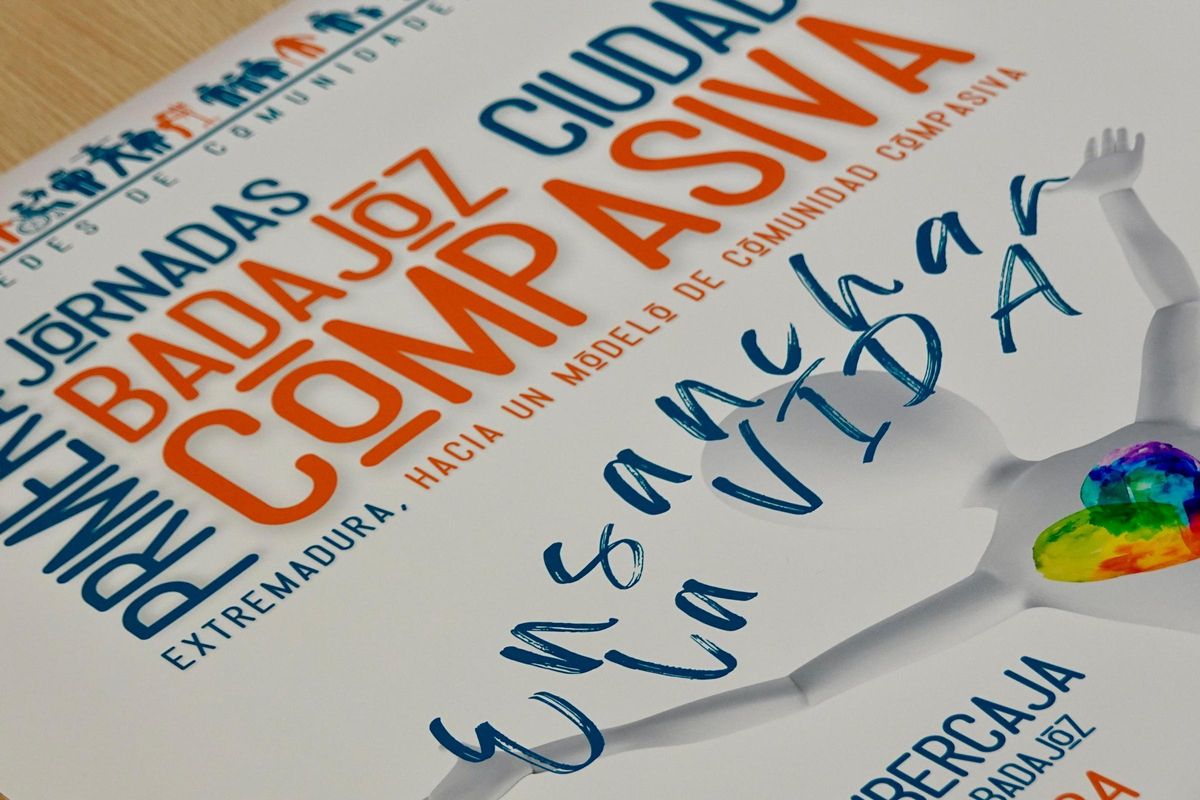 DE COMUNIDADE
PRIMERAS JORNADAS
BADAJOZ CIUDAD
COMPASIVA
EXTREMADURA, HACIA UN MODELO DE COMUNIDAD COMPASIVA
Ensanchar
La VIDA
IBERCAJA
BADAJOZ